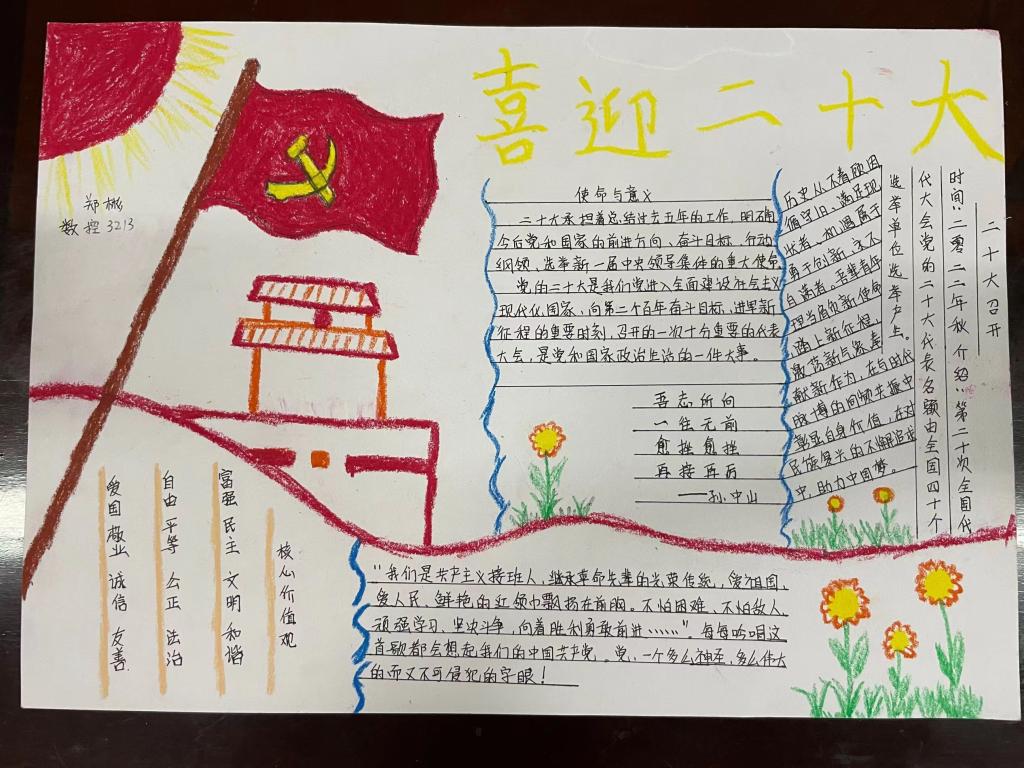 喜迎二十大
郑彬
数控3213
使命与意义
二十大承担着总结过去五年的工作,明确
今后党和国家的前进方向、奋斗目标、行动
纲领、选举新一届中央领导集体的重大使命
党的二十大是我们党进入全面建设社会主义
现代化国家,向第二个百年奋斗目标,进军新
征程的重要时刻,召开的一次十分重要的代表
大会,是党和国家政治生活的一件大事。
吾志所向
一往无前
愈挫愈挫
再接再厉
——孙中山
二十大召开
时间:二零二二年秋 介绍:第二十次全国代
代大会党的二十大代表名额由全国四十个
选举单位选举产生。
历史从不眷顾因
循守旧、满足现
状者、机遇属于
勇于创新、永不
自满者。吾辈青年
担当肩负新使命
,踏上新征程,
展药新气象,奉
献新作为,在与时代
脉搏的同频共振中
彰显自身价值,在对
民族复兴的不懈追求
中,助力中国梦。
核心价值观
富强 民主 文明 和谐
自由 平等 公正 法治
爱国 敬业 诚信 友善
“我们是共产主义接班人,继承革命先辈的光荣传统,爱祖国,
爱人民、鲜艳的红领巾飘扬在前胸。不怕困难、不怕敌人,
顽强学习、坚决斗争,向着胜利勇敢前进……”。每每吟唱这
首歌都会想起我们的中国共产党。党,一个多么神圣,多么伟大
的而又不可侵犯的字眼!